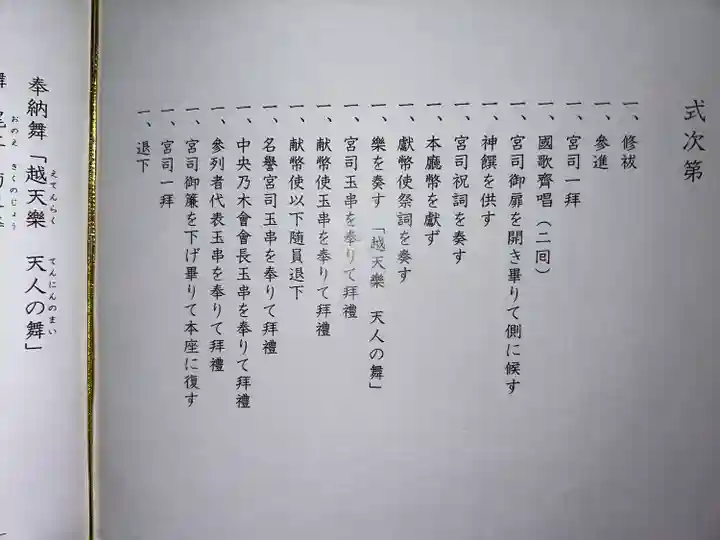 式次第
一、修祓
一、參進
一、宮司一拜
一、國歌齊唱（二回）
一、宮司御扉を開き畢りて側に候す
一、神饌を供す
一、宮司祝詞を奏す
一、本廳幣を獻ず
一、獻幣使祭詞を奏す
一、樂を奏す「越天樂　天人の舞」
一、宮司玉串を奉りて拜禮
一、献幣使玉串を奉りて拜禮
一、献幣使以下随員退下
一、名譽宮司玉串を奉りて拜禮
一、中央乃木會會長玉串を奉りて拜禮
一、參列者代表玉串を奉りて拜禮
一、宮司御簾を下げ畢りて本座に復す
一、宮司一拜
一、退下
えてんらく　てんにんのまい
奉納舞「越天樂　天人の舞」
おのえ　きくのじょう